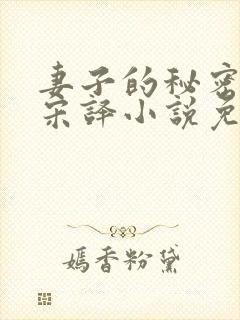 妻子的秘密
宋译小说免
嫣香粉黛